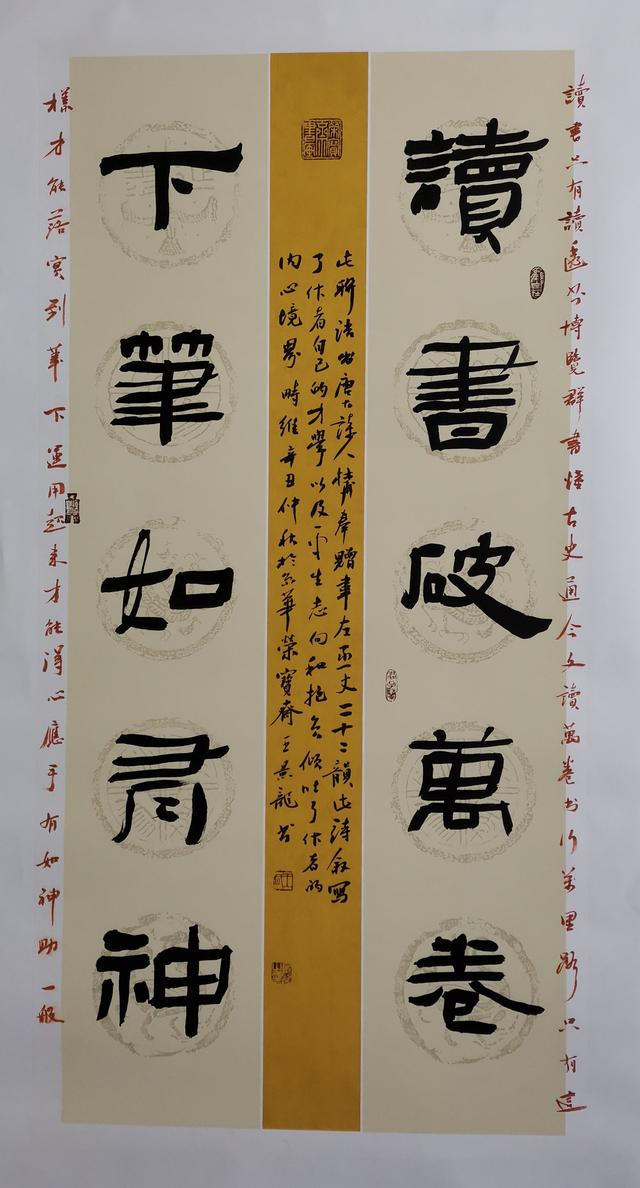 讀書只有讀透必博覽群書懂古史通今文讀萬卷书行萬里路只有這
讀書破萬卷
此聯語出唐大詩人杜甫奉贈韋左丞丈二十二韻此詩叙寫
了作者自己的才學以及平生志向和抱负倾吐了作者的
内心境界時維辛丑仲秋於京華榮寶齋王景龍书
下筆如有神
樣才能落實到筆下運用起来才能得心應手有如神助一般